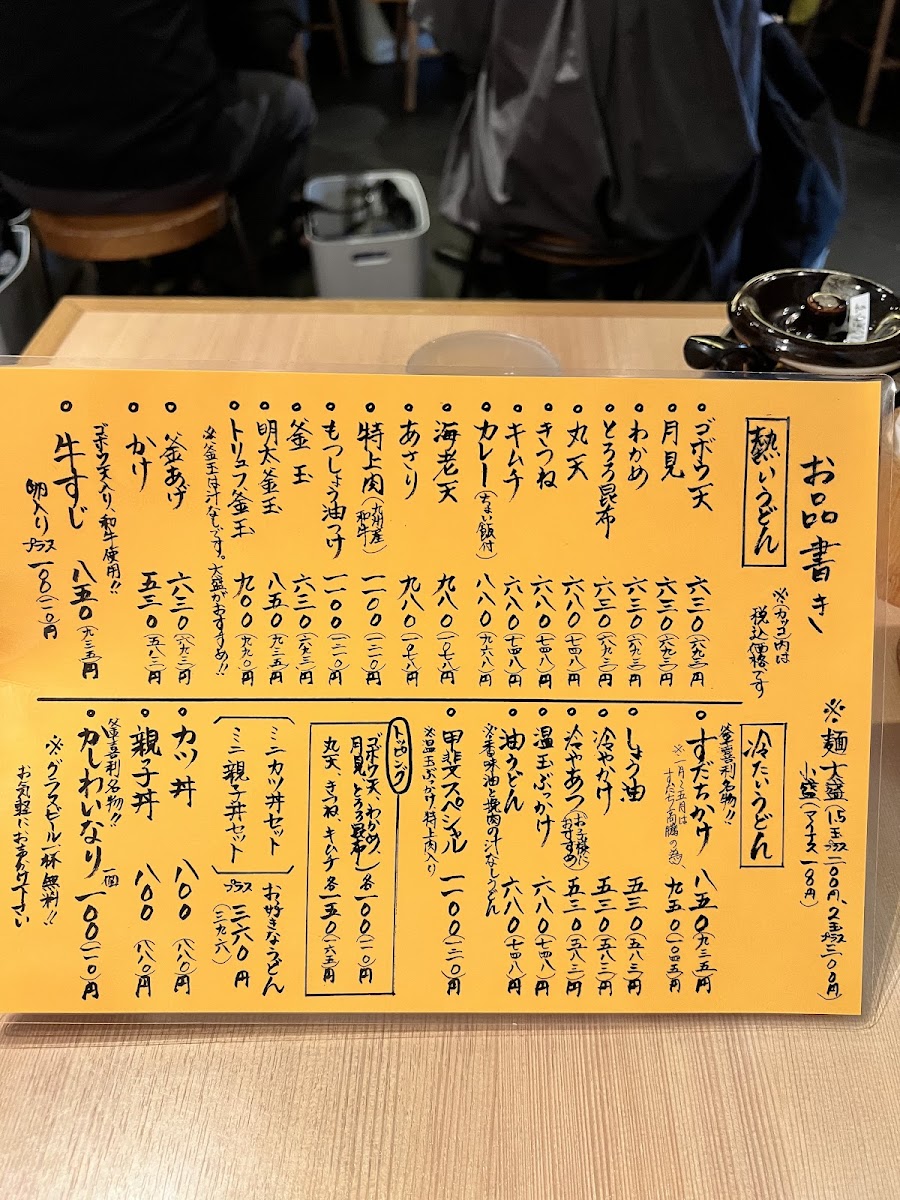 お品書き
※カッコ内は
税込価格です
※麺大盛(1.5玉プラス二〇〇円、2玉プラス三〇〇円)
小盛(マイナス一〇円)
熱いうどん
ゴボウ天 六三〇(六九三)円
月見 六三〇(六九三)円
わかめ 六三〇(六九三)円
とろろ昆布 六三〇(六九三)円
丸天 六八〇(七四八)円
きつね 六八〇(七四八)円
キムチ 六八〇(七四八)円
カレー(ちょい飯付) 八八〇(九六八)円
海老天 九八〇(一〇七八)円
あさり 九八〇(一〇七八)円
特上肉(九州産和牛) 一一〇〇(一二一〇)円
もつしょう油つけ 一一〇〇(一二一〇)円
釜玉 六三〇(六九三)円
明太釜玉 八五〇(九三五)円
トリュフ釜玉 九〇〇(九九〇)円
※釜玉は汁なしです。大盛がおすすめ!!
釜あげ 六三〇(六九三)円
かけ 五三〇(五八三)円
ゴボウ天入り、和牛使用!!
牛すじ 八五〇(九三五)円
卵入り プラス 一〇〇(一一〇)円
冷たいうどん
釜喜利名物!!
すだちかけ 八五〇(九三五)円
※一月〜五月はすだち高騰の為、九五〇(一〇四五)円
しょう油 五三〇(五八三)円
冷やかけ 五三〇(五八三)円
冷やあつ(お子様におすすめ) 五三〇(五八三)円
温玉ぶっかけ 六八〇(七四八)円
油うどん 六八〇(七四八)円
※香味油と挽肉の汁なしうどん
甲斐スペシャル 一一〇〇(一二一〇)円
※温玉ぶっかけ、特上肉入り
トッピング
ゴボウ天、わかめ、
月見、とろろ昆布 各一〇〇(一一〇)円
丸天、きつね、キムチ 各一五〇(一六五)円
ミニカツ丼セット
ミニ親子丼セット
お好きなうどん
プラス 三六〇円
(三九六)
カツ丼 八〇〇(八八〇)円
親子丼 八〇〇(八八〇)円
釜喜利名物!!
かしわいなり 一個 一〇〇(一一〇)円
※グラスビール一杯無料!!
お気軽にお声がけ下さい